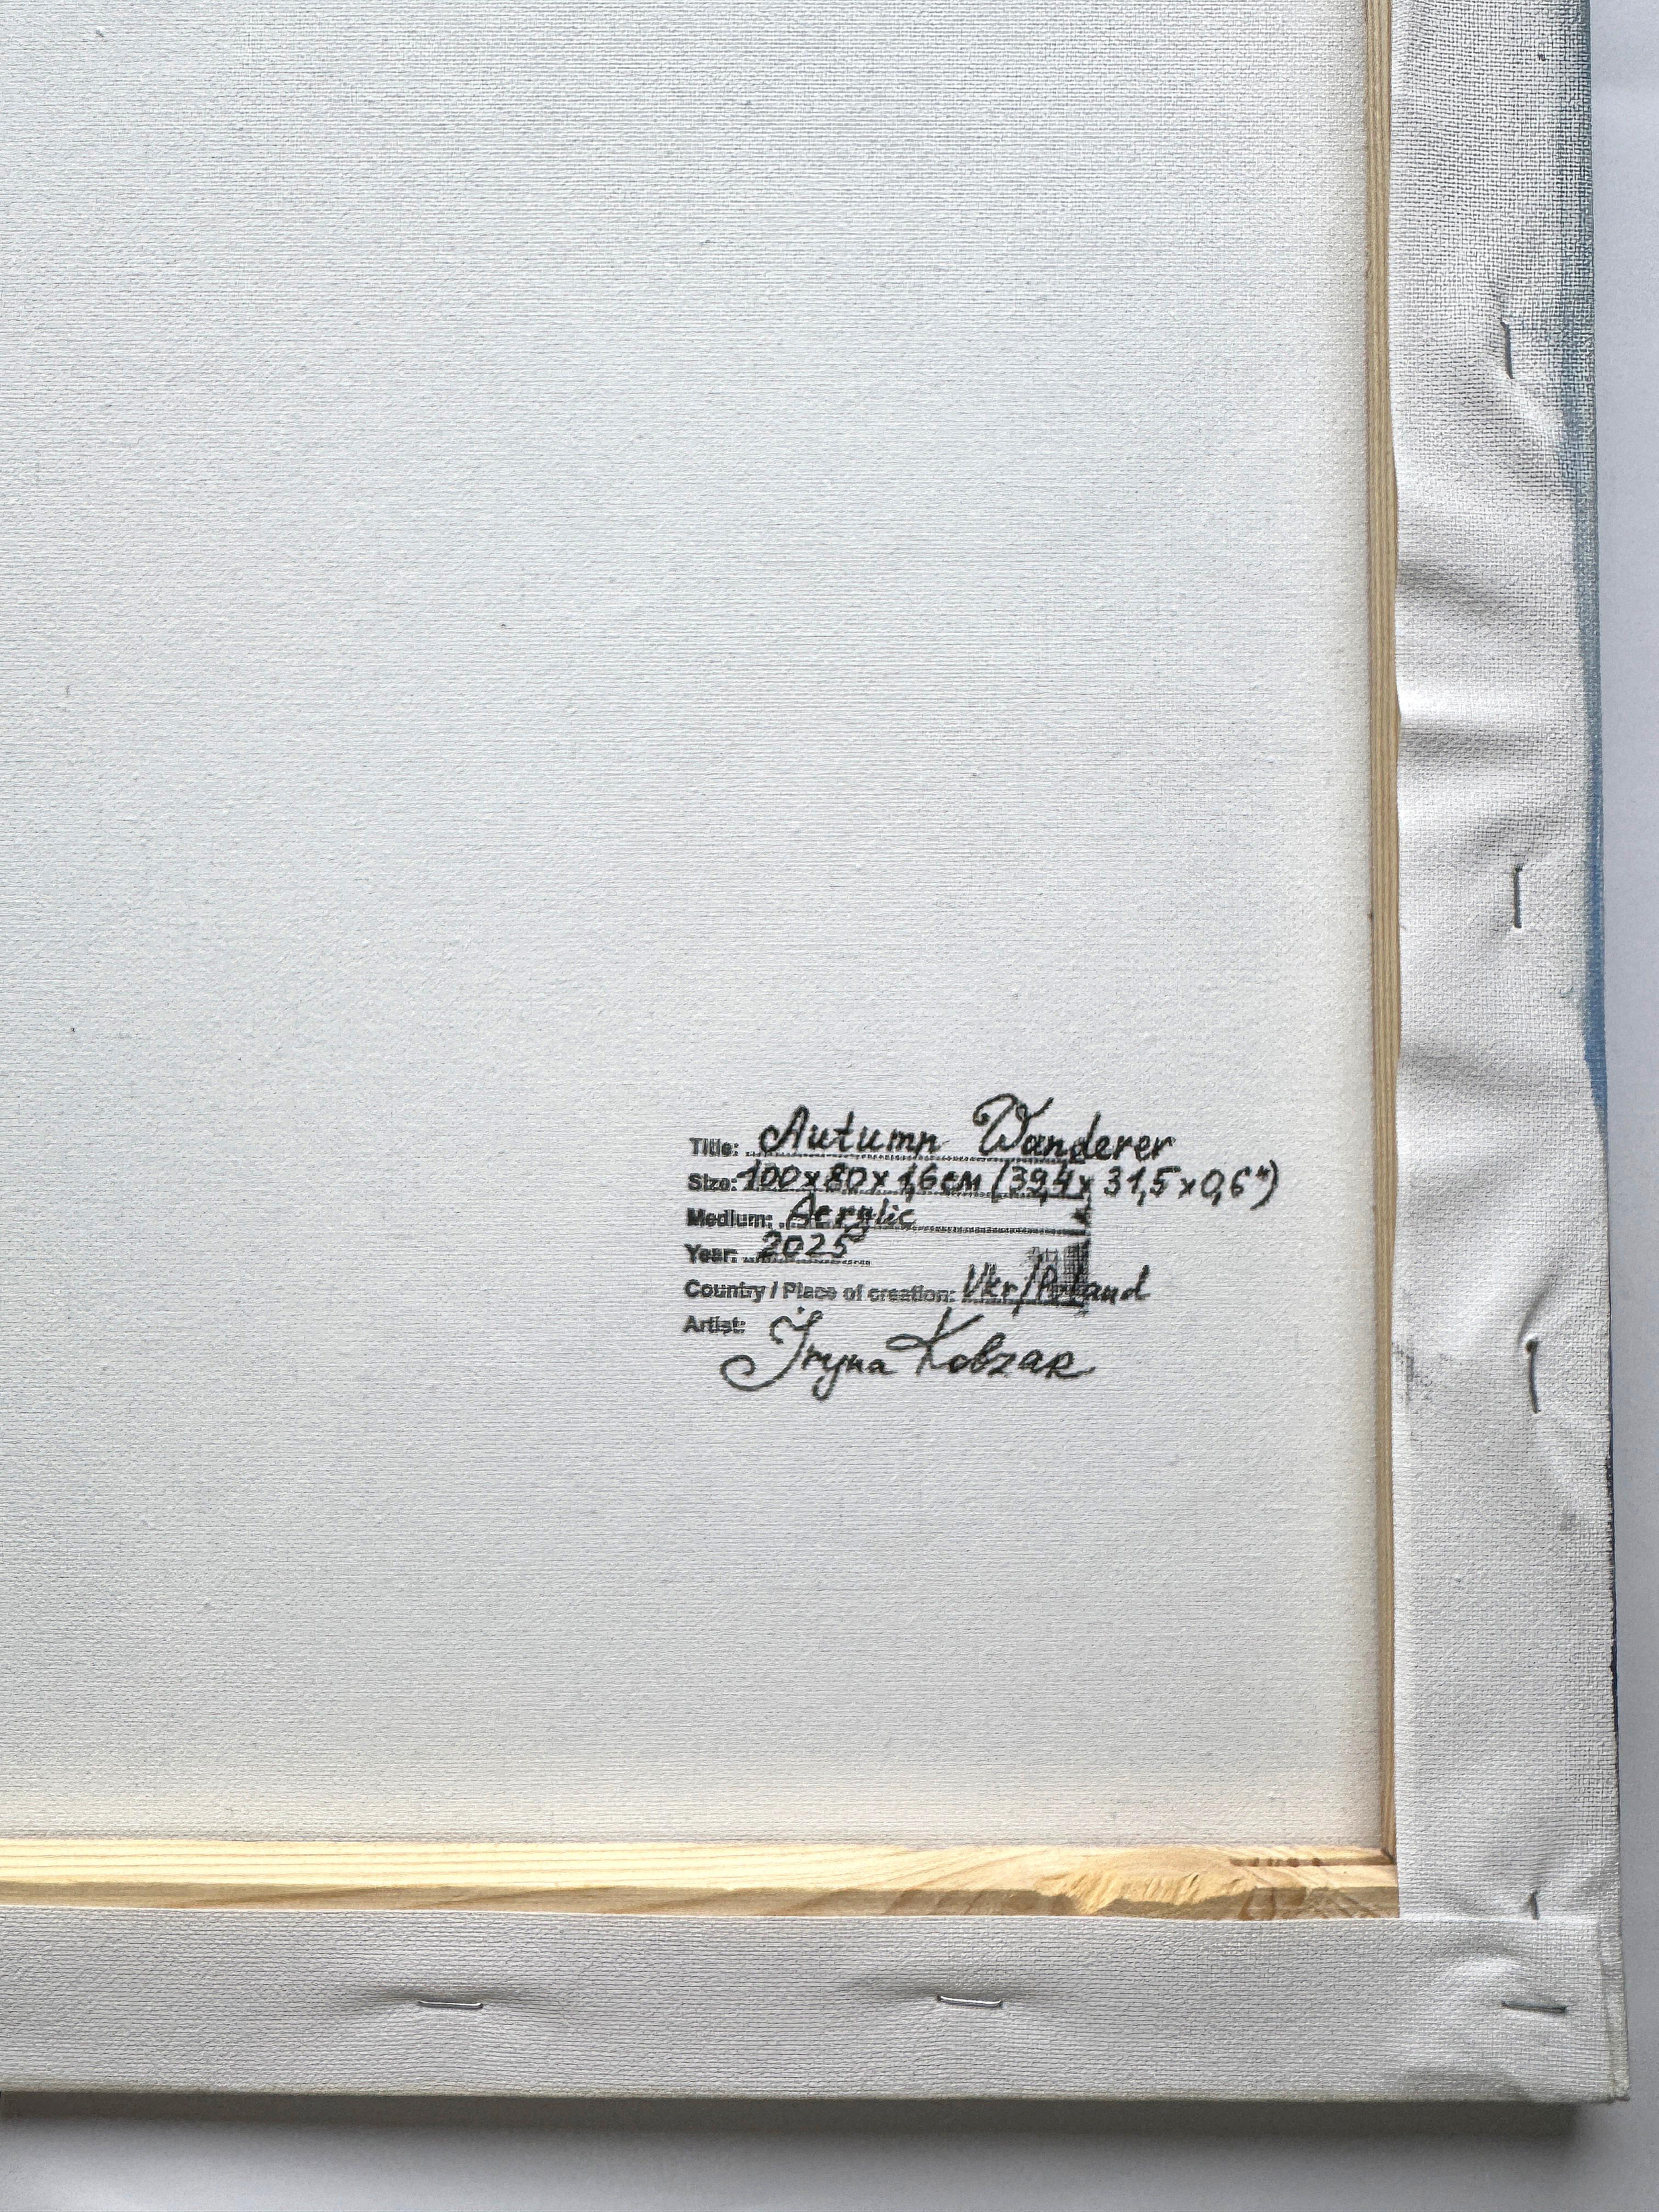 Title: Autumn Wanderer
Size: 100x80x1,6см (39,4x31,5x0,6")
Medium: Acrylic
Year: 2025
Country / Place of creation: Ukr/Poland
Artist: Iryna Kobzar